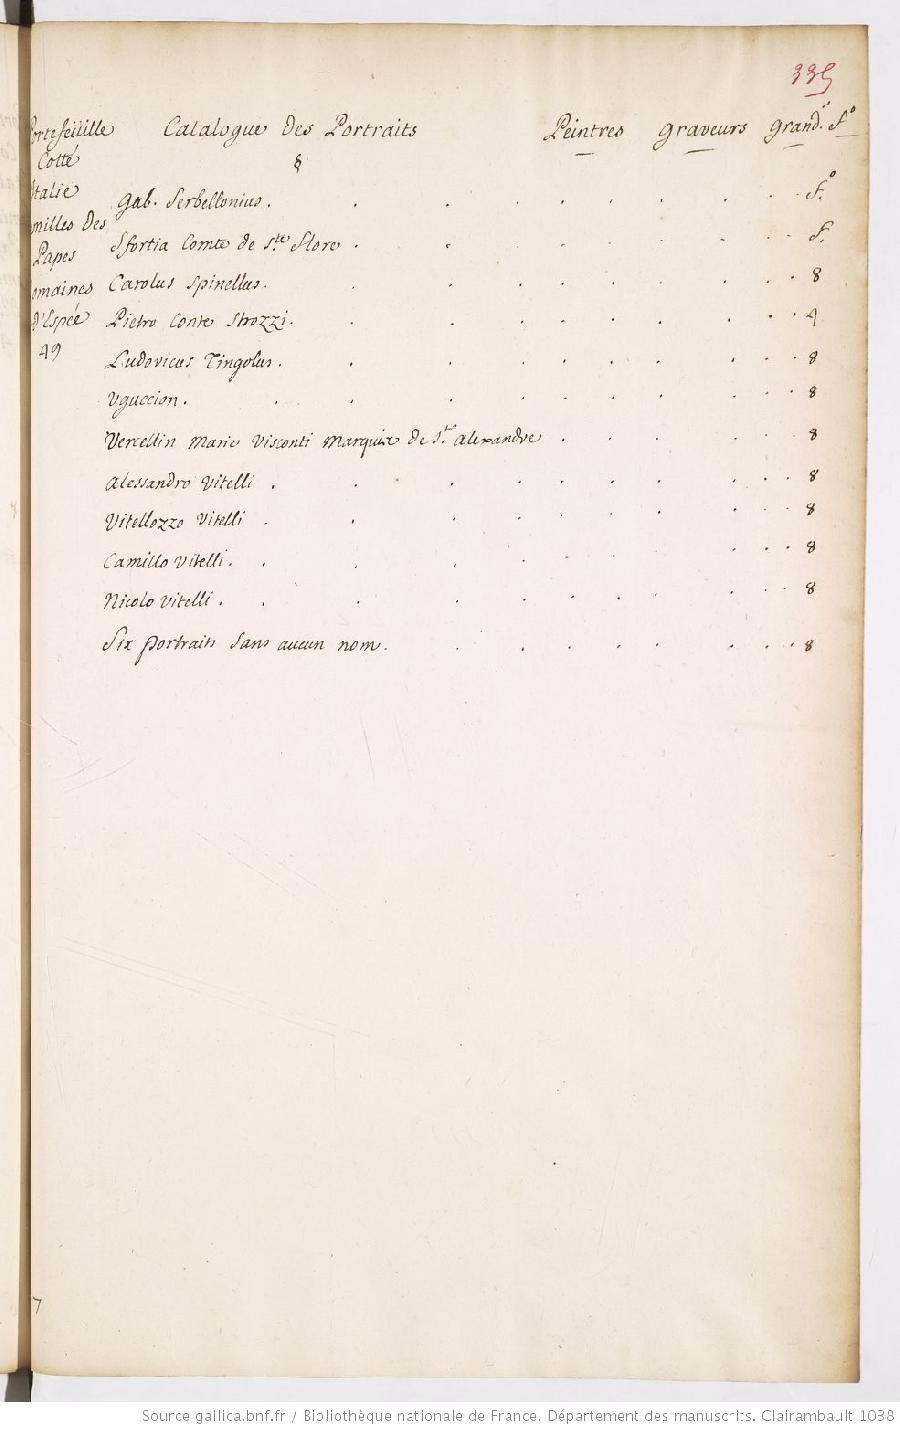 335
Portefeüille Catalogue des Portraits Peintres graveurs grand.r f.o
Cotté
Italie
Gab. Serbellonius. f.o
milles des
Sfortia Comte de S.te Flore f.
Papes
omaines Carolus Spinellus. 8
d'Espée Pietro Conte Strozzi. 4
49
Ludovicus Tingolus. 8
Uguccion. 8
Vercellin Marie Visconti Marquis de S.t Alexandre 8
Alessandro Vitelli 8
Vitellozzo Vitelli 8
Camillo Vitelli. 8
Nicolo Vitelli. 8
Six portraits Sans aucun nom. 8
7
Source gallica.bnf.fr / Bibliothèque nationale de France. Département des manuscrits. Clairambault 1038